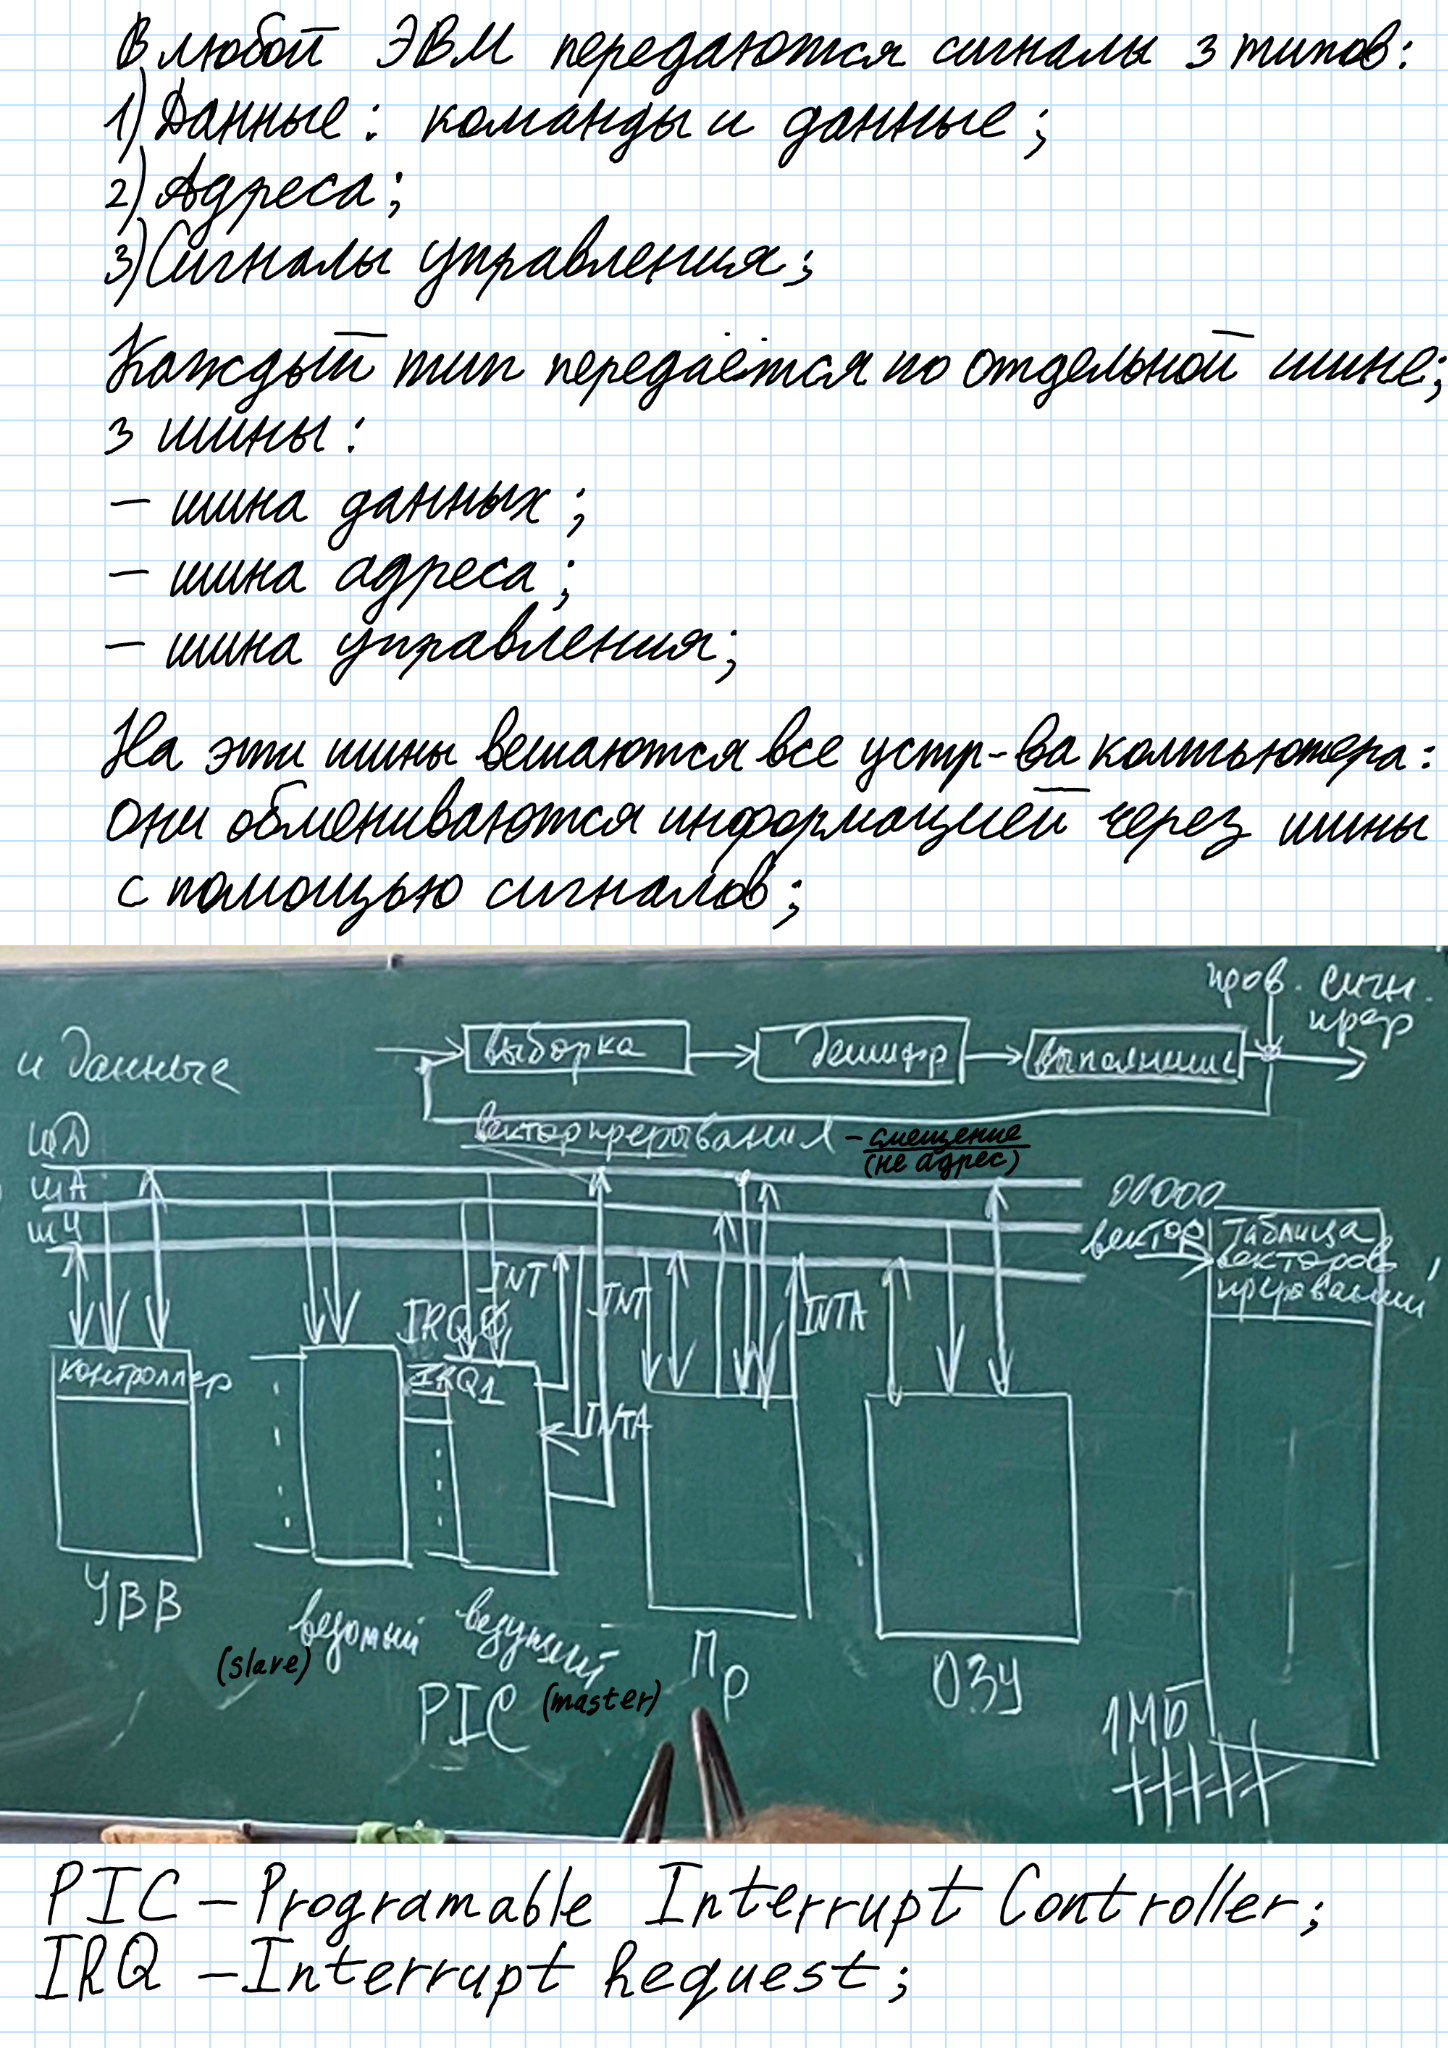 В любой ЭВМ передаются сигналы 3 типов:
1) Данные: команды и данные;
2) Адреса;
3) Сигналы управления;
Каждый тип передаётся по отдельной шине;
3 шины:
- шина данных;
- шина адреса;
- шина управления;
На эти шины вешаются все устр-ва компьютера:
они обмениваются информацией через шины
с помощью сигналов;
пров. сигн.
прер
и данные
выборка
дешифр
выполнение
вектор прерывания - смещение
(не адрес)
ШД
ША
ШУ
вектор
Таблица
векторов
прерываний
INT
INT
INTA
IRQ0
IRQ1
INTA
контроллер
УВВ
ведомый
(slave)
ведущий
(master)
PIC
Пр
ОЗУ
1МБ
PIC - Programable Interrupt Controller;
IRQ - Interrupt Request;